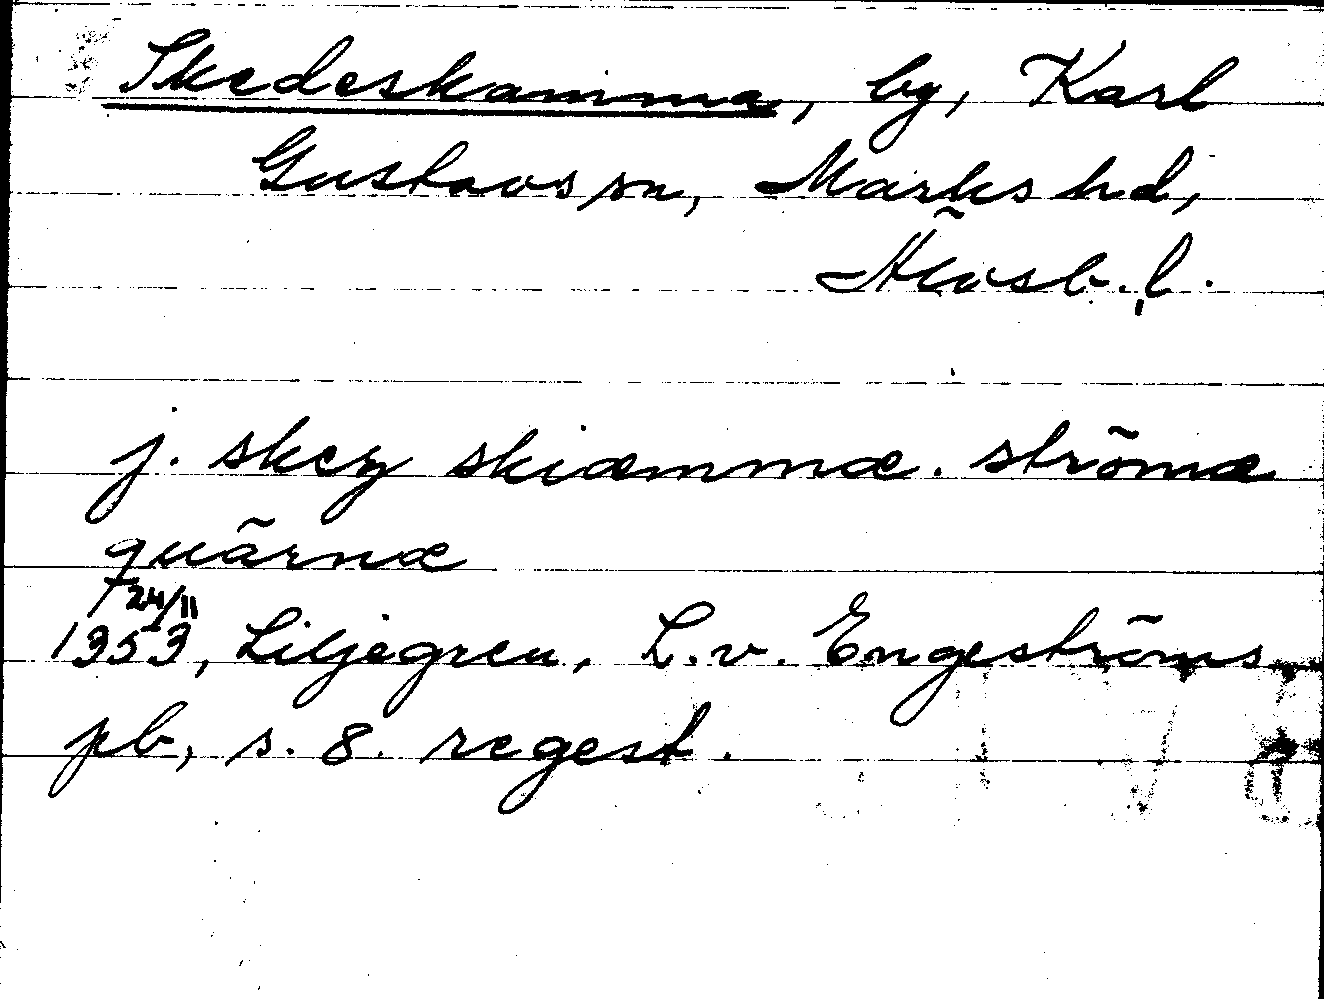 Skedeskamma, by, Karl
Gustavs sn, Marks hd,
Älvsb. l.
j. skey skiæmmæ. strömæ
quärnæ
24/11
1353, Liljegren, L. v. Engeströms
pb, s. 8. regest.